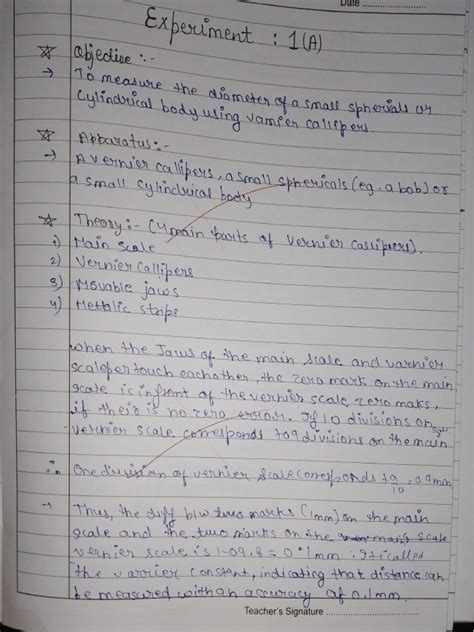 Date ..................
Experiment : 1(A)
Objective :-
→ To measure the diameter of a small spherials or
cylindrical body using varnier callipers.
Apparatus:-
→ A vernier callipers, a small sphericals (eg. a bob) or
a small cylindrical body
Theory:- (4 main parts of vernier callipers).
1) Main scale
2) Vernier callipers
3) Movable jaws
4) Mettalic strips
when the Jaws of the main scale and varnier
scale touch eachother, the zero mark on the main
scale is infront of the vernier scale zero maks,
if their is no zero errors. If 10 divisions on
vernier scale corresponds to 9 divisions on the main
∴ One division of vernier scale corresponds to 9/10 = 0.9mm
→ Thus, the diff b/w two marks (1mm) on the main
scale and the two marks on the scale
vernier scale is = 0.1mm. It is called
the varrier constant, indicating that distance can
be measured with an accuracy of 0.1mm.
Teacher's Signature ........................